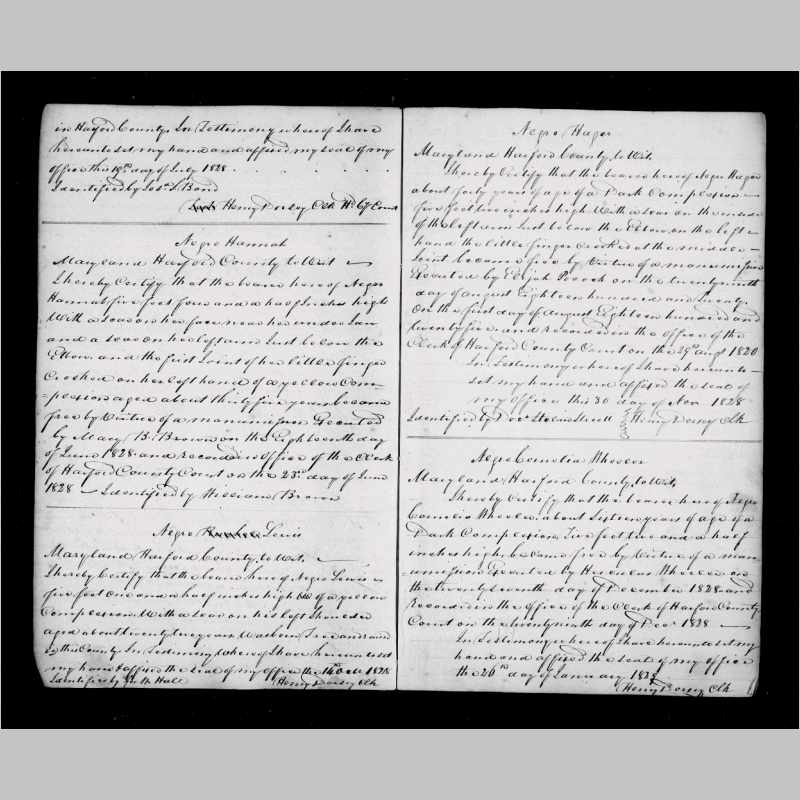 in Harford County. In Testimony whereof I have
hereunto set my hand and affixed my seal of my
office this 19th day of July 1828
Identified by L. Bond
Henry Dorsey Clk Hd Cy Court
Negro Hannah
Maryland Harford County to Wit
I hereby Certify that the bearer hereof Negro
Hannah five feet four and a half Inches high
With a scar on her face near her under Jaw
and a scar on her left arm Just below the
Elbow and the first Joint of her little finger
Crooked on her left hand of a yellow Com=
=plexion aged about thirty five years became
free by Virtue of a manumission Executed
by Mary B. Brown on the Eighteenth day
of June 1828 and recorded in Office of the Clerk
of Harford County Court on the 23d day of June
1828 Identified by William Brown
Negro Lewis
Maryland Harford County to Wit.
I hereby Certify that the bearer hereof Negro Lewis is
five feet One and a half inches high of a yellow
Complexion With a scar on his left shoulder
aged about twenty two years Was born free and raised
In this County In Testimony Whereof I have hereunto set
my hand & affix the seal of my Office the Oct 1828
Identified by Hall Henry Dorsey Clk
Negro Hager
Maryland Harford County to Wit.
I hereby Certify that the bearer hereof Negro Hager
about forty years of age of a Dark Complexion
five feet two inches high With a scar on the inside
of the left arm Just below the Elbow on the left
hand the little finger crooked at the middle
Joint became free by Virtue of a manumission
Executed by Elijah on the twenty ninth
day of august Eighteen hundred and twenty
On the first day of august Eighteen hundred and
twenty five and recorded in the office of the
Clerk of Harford County Court on the 29th augt 1820
In Testimony whereof I have hereunto
set my hand and affixed the seal of
my office this 30 day of Nov. 1828
Identified by Street Henry Dorsey Clk
Negro Cornelia Wheeler
Maryland Harford County to Wit,
I hereby Certify that the bearer hereof Negro
Cornelia Wheeler about Sixteen years of age of a
Dark Complexion five feet two and a half
inches high became free by Virtue of a man=
=umission Executed by Wheeler on
the twenty seventh day of December 1828 and
Recorded in the Office of the Clerk of Harford County
Court on the twenty ninth day of Decr 1828
In Testimony whereof I have hereunto set my
hand and affixed the seal of my office
the 26th day of January
Henry Dorsey Clk